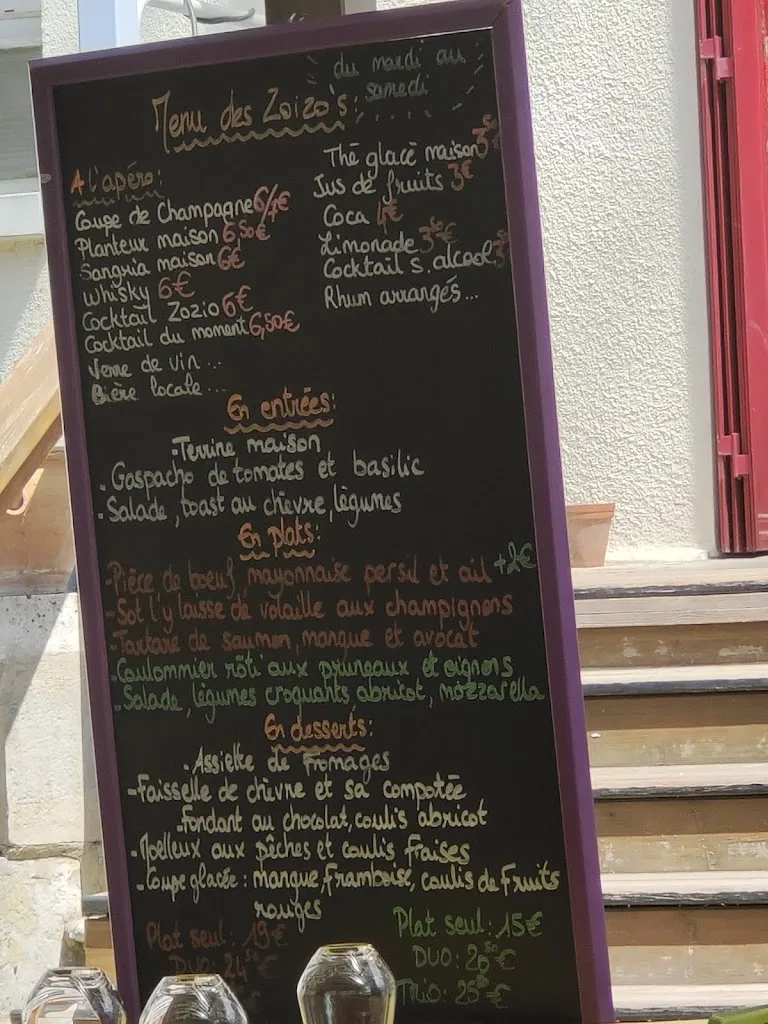 du mardi au
samedi
Menu des Zoizo's:
A l'apéro:
Coupe de Champagne 6/7€
Planteur maison 6,50€
Sangria maison 6€
Whisky 6€
Cocktail Zozio 6€
Cocktail du moment 6,50€
Verre de vin ...
Bière locale ...
Thé glacé maison
Jus de fruits 3€
Coca 4€
Limonade
Cocktail s. alcool
Rhum arrangés...
En entrées:
-Terrine maison
. Gaspacho de tomates et basilic
- Salade, toast au chèvre, légumes
En plats:
-Pièce de boeuf mayonnaise persil et ail +2€
-Sot l'y laisse de volaille aux champignons
-Tartare de saumon, mangue et avocat
-Coulommier rôti aux pruneaux et oignons
-Salade, légumes croquants abricot, mozzarella
En desserts:
. Assiette de Fromages
-Faisselle de chèvre et sa compotée
-Fondant au chocolat, coulis abricot
-Moelleux aux pêches et coulis fraises
-Coupe glacée : mangue, framboise, coulis de Fruits
rouges
Plat seul : 19€
DUO: 24
Plat seul : 15€
DUO: 20⁵⁰€
TRIO: 25⁵⁰€